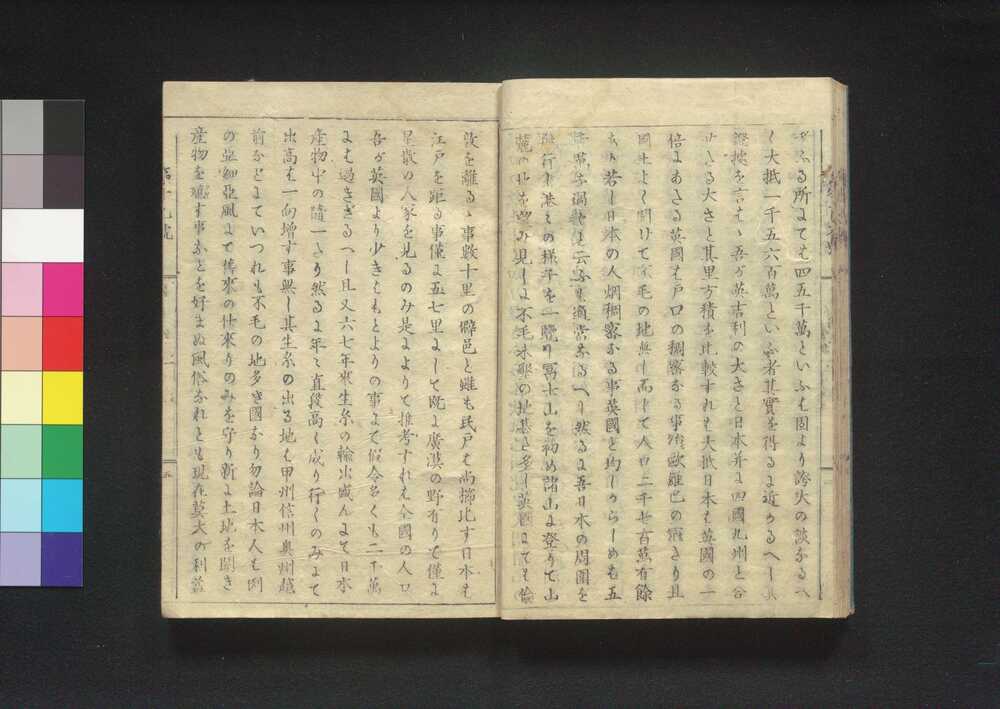 る所にても四五千萬といふも固より誇大の談なるへ
く大抵一千五六百萬といふ者其實を得るに近かるへし其
證據を言はゝ吾か英吉利の大さと日本并に四國九州と合
せたる大さと其里方積を比較すれは大抵日本は英國の一
倍にあたる英國は戸口の稠密なる事歐羅巴の冠たり且
國土よく開けて不毛の地無し而して人口二千廿百萬有餘
あり若し日本の人烟稠密なる事英國と均しからしめは五
千萬に過ると云ふも適當なるへし然るに吾日本の周圍を
航行し港々の樣子を一覽し冨士山を初め諸山に登りて山
麓の地を望み見しに不毛水郷の地甚た多し英國にても倫
敦を離るゝ事數十里の僻邑と雖も民戸は尚櫛比す日本は
江戸を距る事僅に五七里にして既に廣漠の野有りて僅に
星散の人家を見るのみ是によりて推考すれは全國の人口
吾か英國より少きはもとよりの事にて假令多くも二千萬
には過きさるへし且又六七年來生糸の輸出盛んにて日本
産物中の隨一より然るに年々直段高く成り行くのみにて
出高は一向增す事無し其生糸の出る地は甲州信州奥州越
前なとにていつれも不毛の地多き國なり勿論日本人も例
の亞細亞風にて傳來の仕來りのみを守り新に土地を開き
産物を殖す事なとを好まぬ風俗なれとも現在莫大の利益